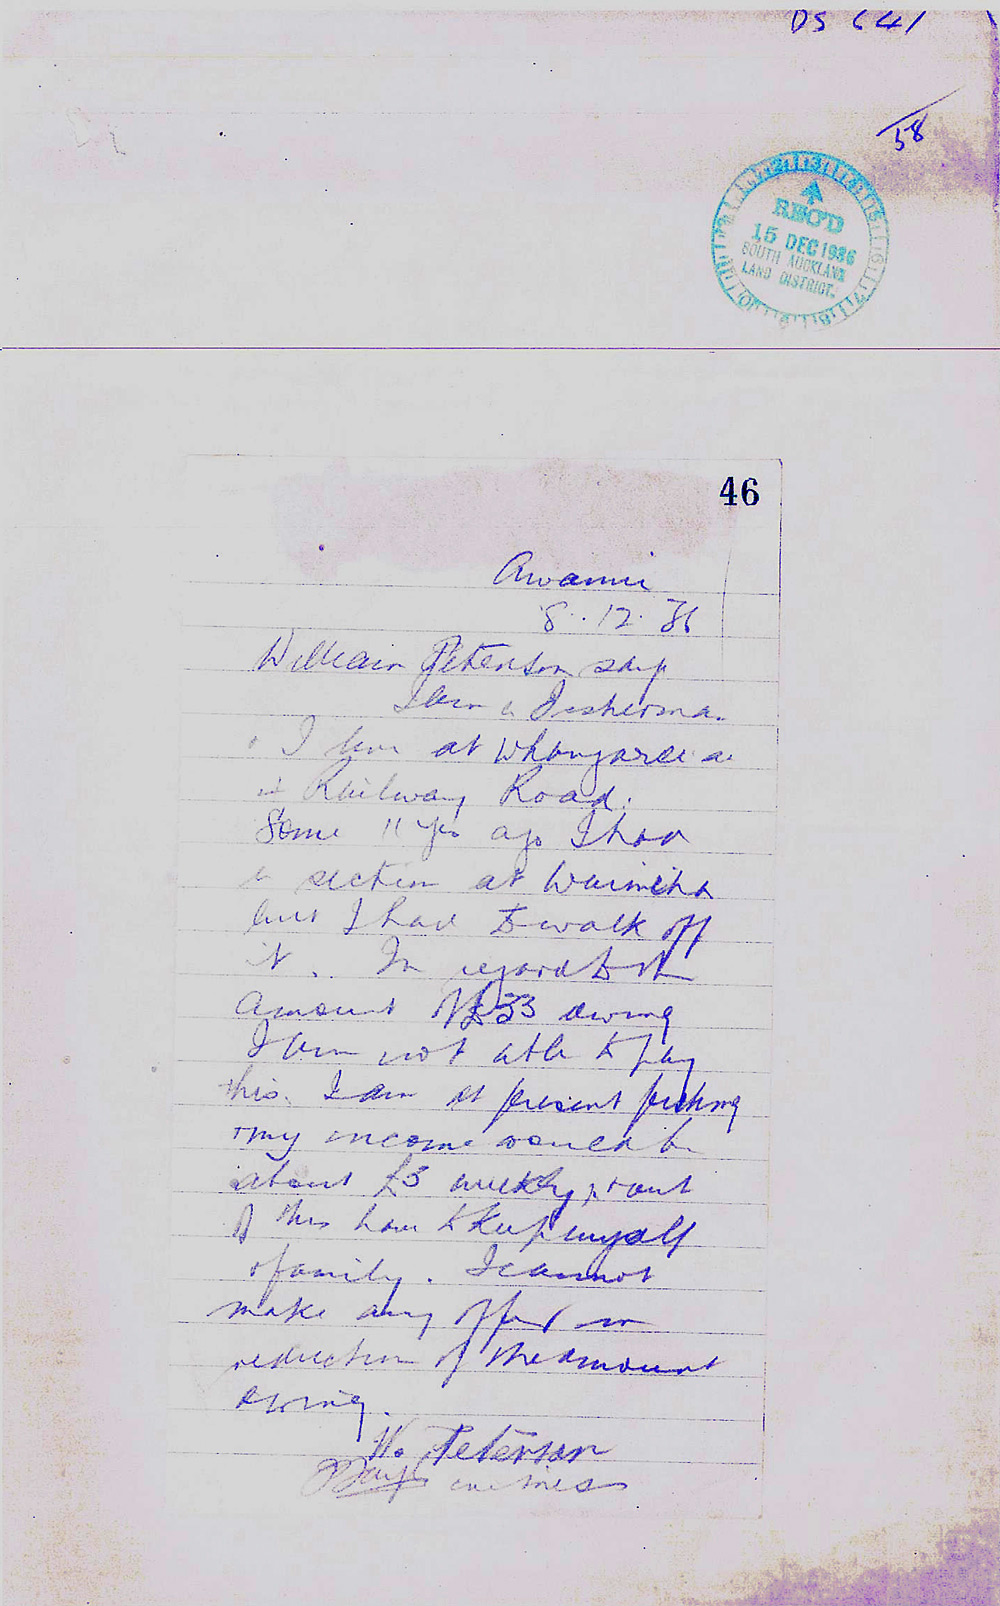 DS 641
58
REC'D
15 DEC 1936
SOUTH AUCKLAND
LAND DISTRICT.
46
Awanui
8.12.36
William Peterson says
I am a Fisherma.
I live at Whangarei
Railway Road.
Some 11 yrs ago I had
a section at Waimiha
but I had to walk off
it. In regard to the
amount of £33 owing
I am not able to pay
this. I am at present fishing
+ my income would be
about £3 weekly, + out
of this have to keep myself
+ family. I cannot
make any offer in
reduction of the amount
owing.
W. Peterson
witness